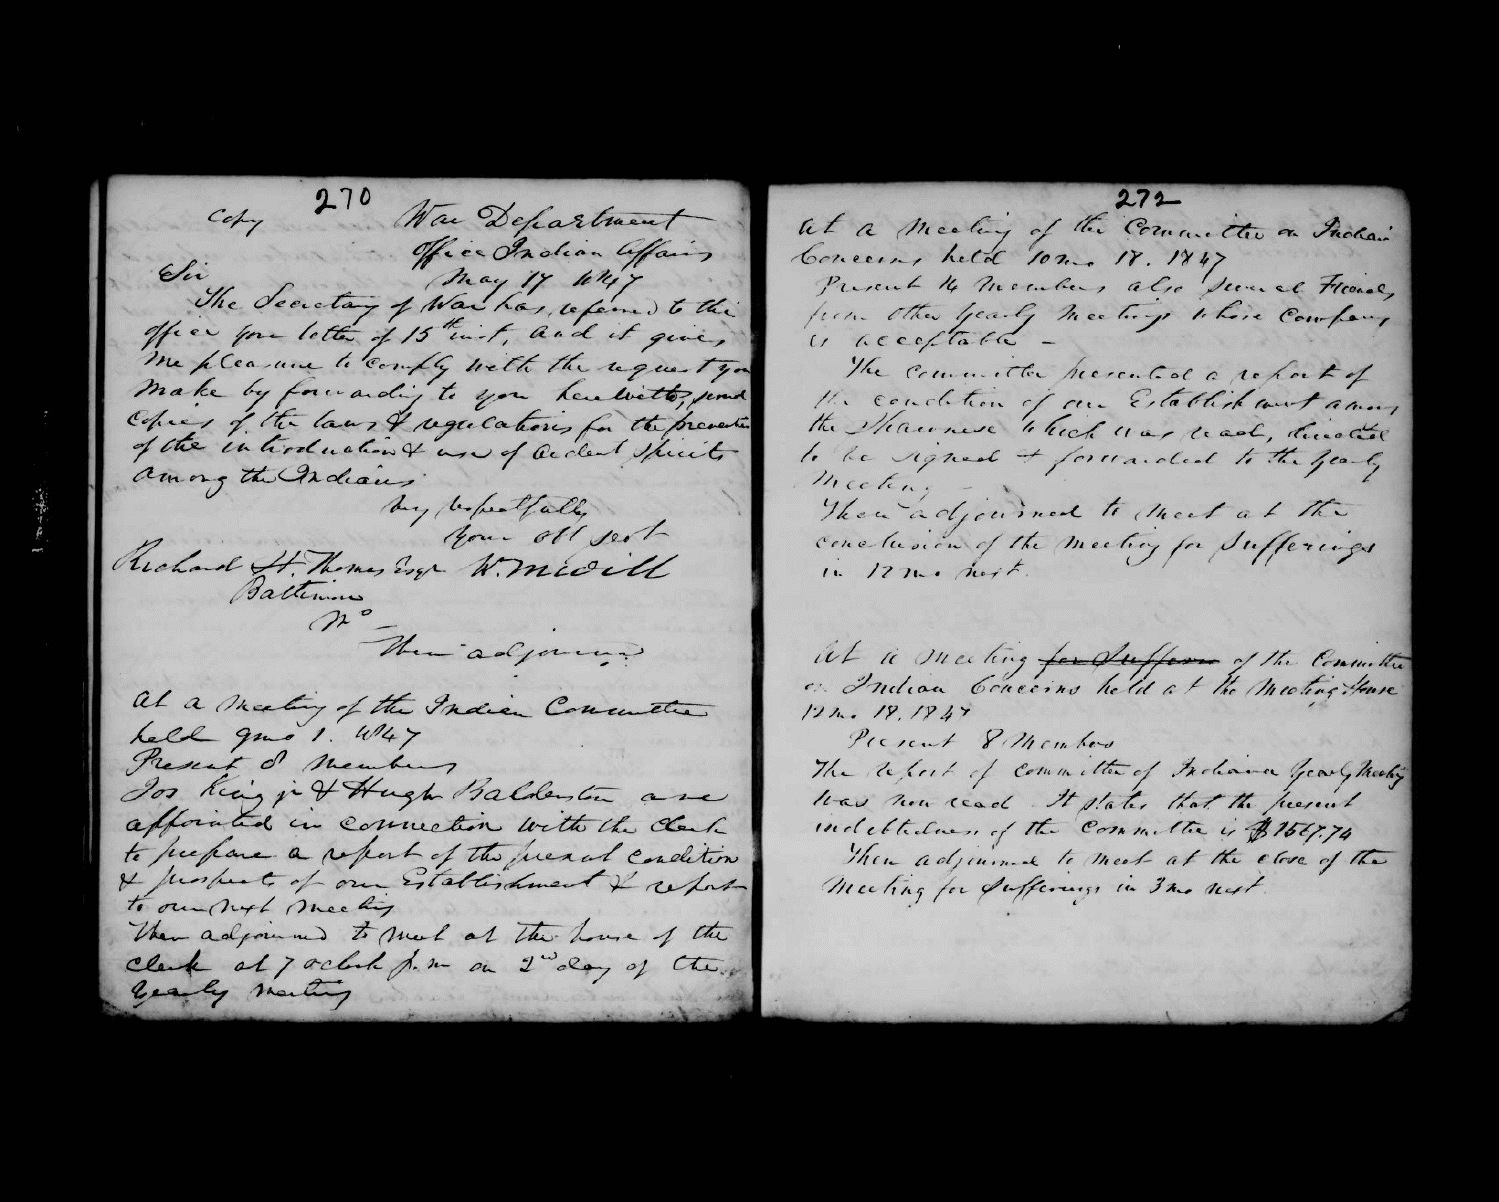 270
Copy War Department
Office Indian Affairs
Sir May 17 1847
The Secretary of War has referred to this
office your letter of 15th inst, and it gives
me pleasure to comply with the request you
make by forwarding to you herewith, several
copies of the laws & regulations for the prevention
of the introduction & use of ardent spirits
among the Indians
Very respectfully
Your obt sert
Richard H. Thomas Esqr W. Medill
Baltimore
Md
Then adjourned
At a meeting of the Indian Committee
held 9mo 1. 1847
Present 8 members
Jos King jr & Hugh Balderston are
appointed in connection with the clerk
to prepare a report of the present condition
& prospects of our Establishment & report
to our next meeting
Then adjourned to meet at the house of the
clerk at 7 oclock p.m on 2nd day of the
Yearly meeting
272
At a meeting of the Committee on Indian
Concerns held 10mo 18. 1847
Present 14 members also several Friends
from other Yearly Meetings whose company
is acceptable –
The committee presented a report of
the condition of our Establishment among
the Shawnese which was read, directed
to be signed & forwarded to the Yearly
Meeting –
Then adjourned to meet at the
conclusion of the meeting for Sufferings
in 12mo next.
At a meeting for Sufferin of the Committee
on Indian Concerns held at the Meeting House
12mo 18. 1847
Present 8 Members
The report of committee of Indiana Yearly Meeting
was now read It states that the present
indebtedness of the committee is
Then adjourned to meet at the close of the
Meeting for Sufferings in 3mo next.